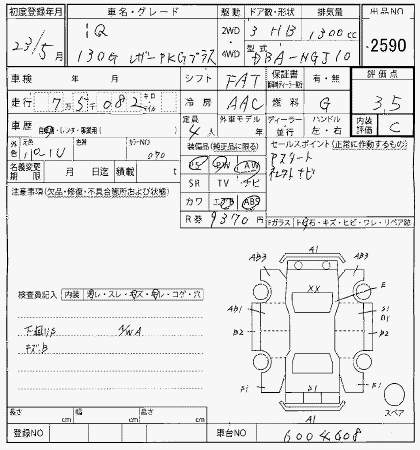 初度登録年月 車名・グレード 駆動 ドア数・形状 排気量 出品NO
23/5月 iQ 2WD 3 HB 1300cc
130G レザーPKGプラス 4WD 型式 DBA-NGJ10 2590
車検 年 月 シフト FAT 保証書 有・無 評価点
走行 7万5千082 キロ マイル 冷房 AAC 燃料 G 3.5
車歴 自家用・レンタ・事業用( ) 定員 4人 外車モデル 年 ディーラー 並行 ハンドル 左・右 内装評価 C
外色 元色 パールツ 色替 カラーNO 070 装備品(純正品に限る) セールスポイント(正常に作動するもの)
名義変更期限 月 日迄 積載 t PS PW AW アスクート
注意事項(欠品・修復・不具合箇所および状態) SR TV ナビ
カワ エアB ABS
R券 9370円 Fガラス・ト石・キズ・ヒビ・ワレ・リペア跡
A1
XX E
検査員記入 内装 コゲ・穴 AB1 AB1 S1 B1
B2 B2
キズB
F1 S1 F1
A1 スペア
長さ cm 幅 cm 高さ cm
登録NO 車台NO 6004608